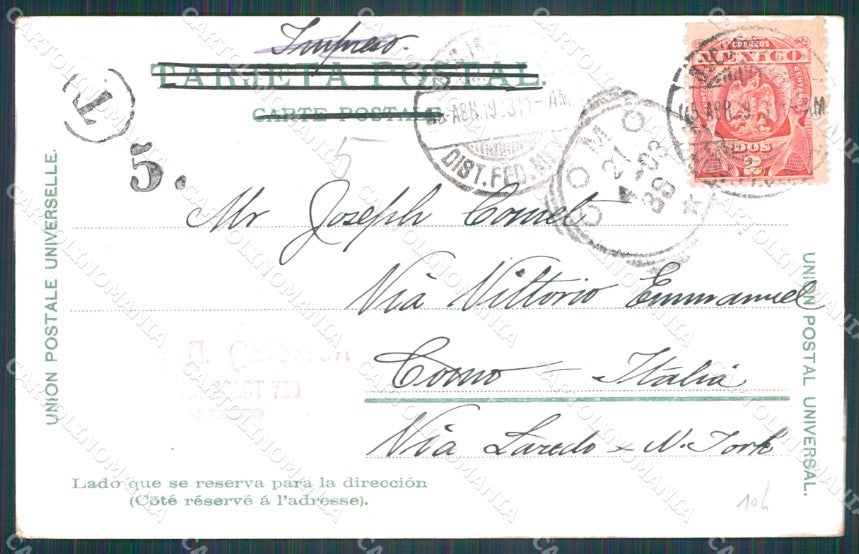 Impreso.
TARJETA POSTAL.
CARTE POSTALE
CORREOS
MEXICO
DOS
2
T
5.
5
ABR. 19 3 11-AM
DIST. FED. MEX
COMO
21
4-03
Mr Joseph Comel
Via Vittorio Emmanuel
Como - Italia
Via Laredo x N. York
UNION POSTALE UNIVERSELLE.
UNION POSTAL UNIVERSAL.
Lado que se reserva para la dirección
(Côté réservé á l'adresse).
10h
CARTOLINOMANIA